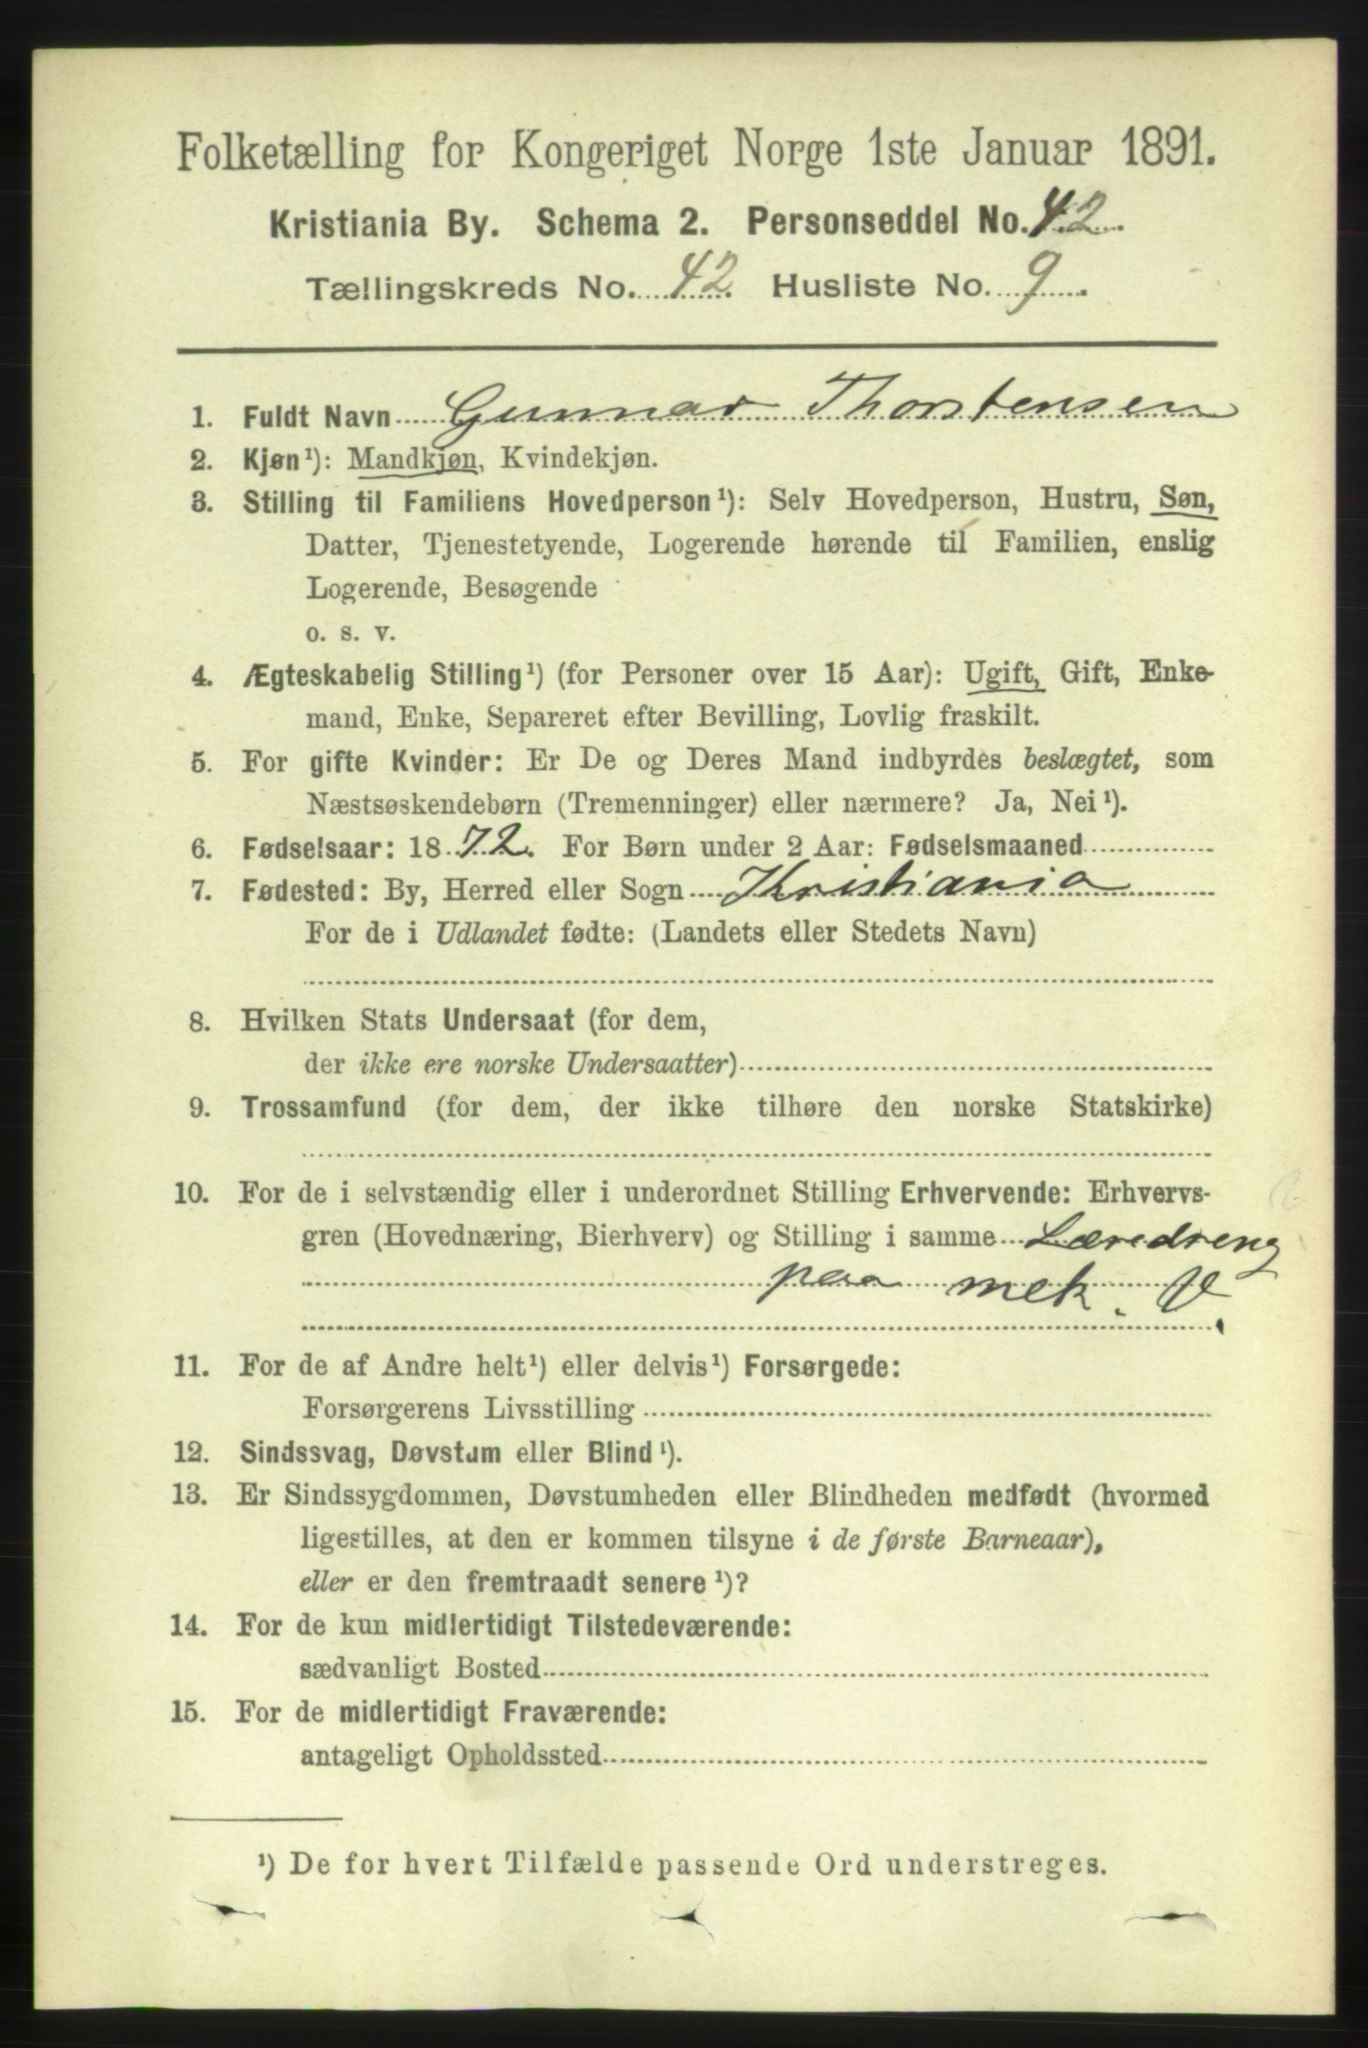 Folketælling for Kongeriget Norge 1ste Januar 1891.
Kristiania By. Schema 2. Personseddel No. 42.
Tællingskreds No. 42. Husliste No. 9.
1. Fuldt Navn Gunnar Thorstensen
2. Kjøn¹): Mandkjøn, Kvindekjøn.
3. Stilling til Familiens Hovedperson¹): Selv Hovedperson, Hustru, Søn,
Datter, Tjenestetyende, Logerende hørende til Familien, enslig
Logerende, Besøgende
o. s. v.
4. Ægteskabelig Stilling¹) (for Personer over 15 Aar): Ugift, Gift, Enke-
mand, Enke, Separeret efter Bevilling, Lovlig fraskilt.
5. For gifte Kvinder: Er De og Deres Mand indbyrdes beslægtet, som
Næstsøskendebørn (Tremenninger) eller nærmere? Ja, Nei¹).
6. Fødselsaar: 1872. For Børn under 2 Aar: Fødselsmaaned
7. Fødested: By, Herred eller Sogn Kristiania
For de i Udlandet fødte: (Landets eller Stedets Navn)
8. Hvilken Stats Undersaat (for dem,
der ikke ere norske Undersaatter)
9. Trossamfund (for dem, der ikke tilhøre den norske Statskirke)
10. For de i selvstændig eller i underordnet Stilling Erhvervende: Erhvervs-
gren (Hovednæring, Bierhverv) og Stilling i samme Læredreng
paa mek. V
11. For de af Andre helt¹) eller delvis¹) Forsørgede:
Forsørgerens Livsstilling
12. Sindssvag, Døvstum eller Blind¹).
13. Er Sindssygdommen, Døvstumheden eller Blindheden medfødt (hvormed
ligestilles, at den er kommen tilsyne i de første Barneaar),
eller er den fremtraadt senere¹)?
14. For de kun midlertidigt Tilstedeværende:
sædvanligt Bosted
15. For de midlertidigt Fraværende:
antageligt Opholdssted
¹) De for hvert Tilfælde passende Ord understreges.